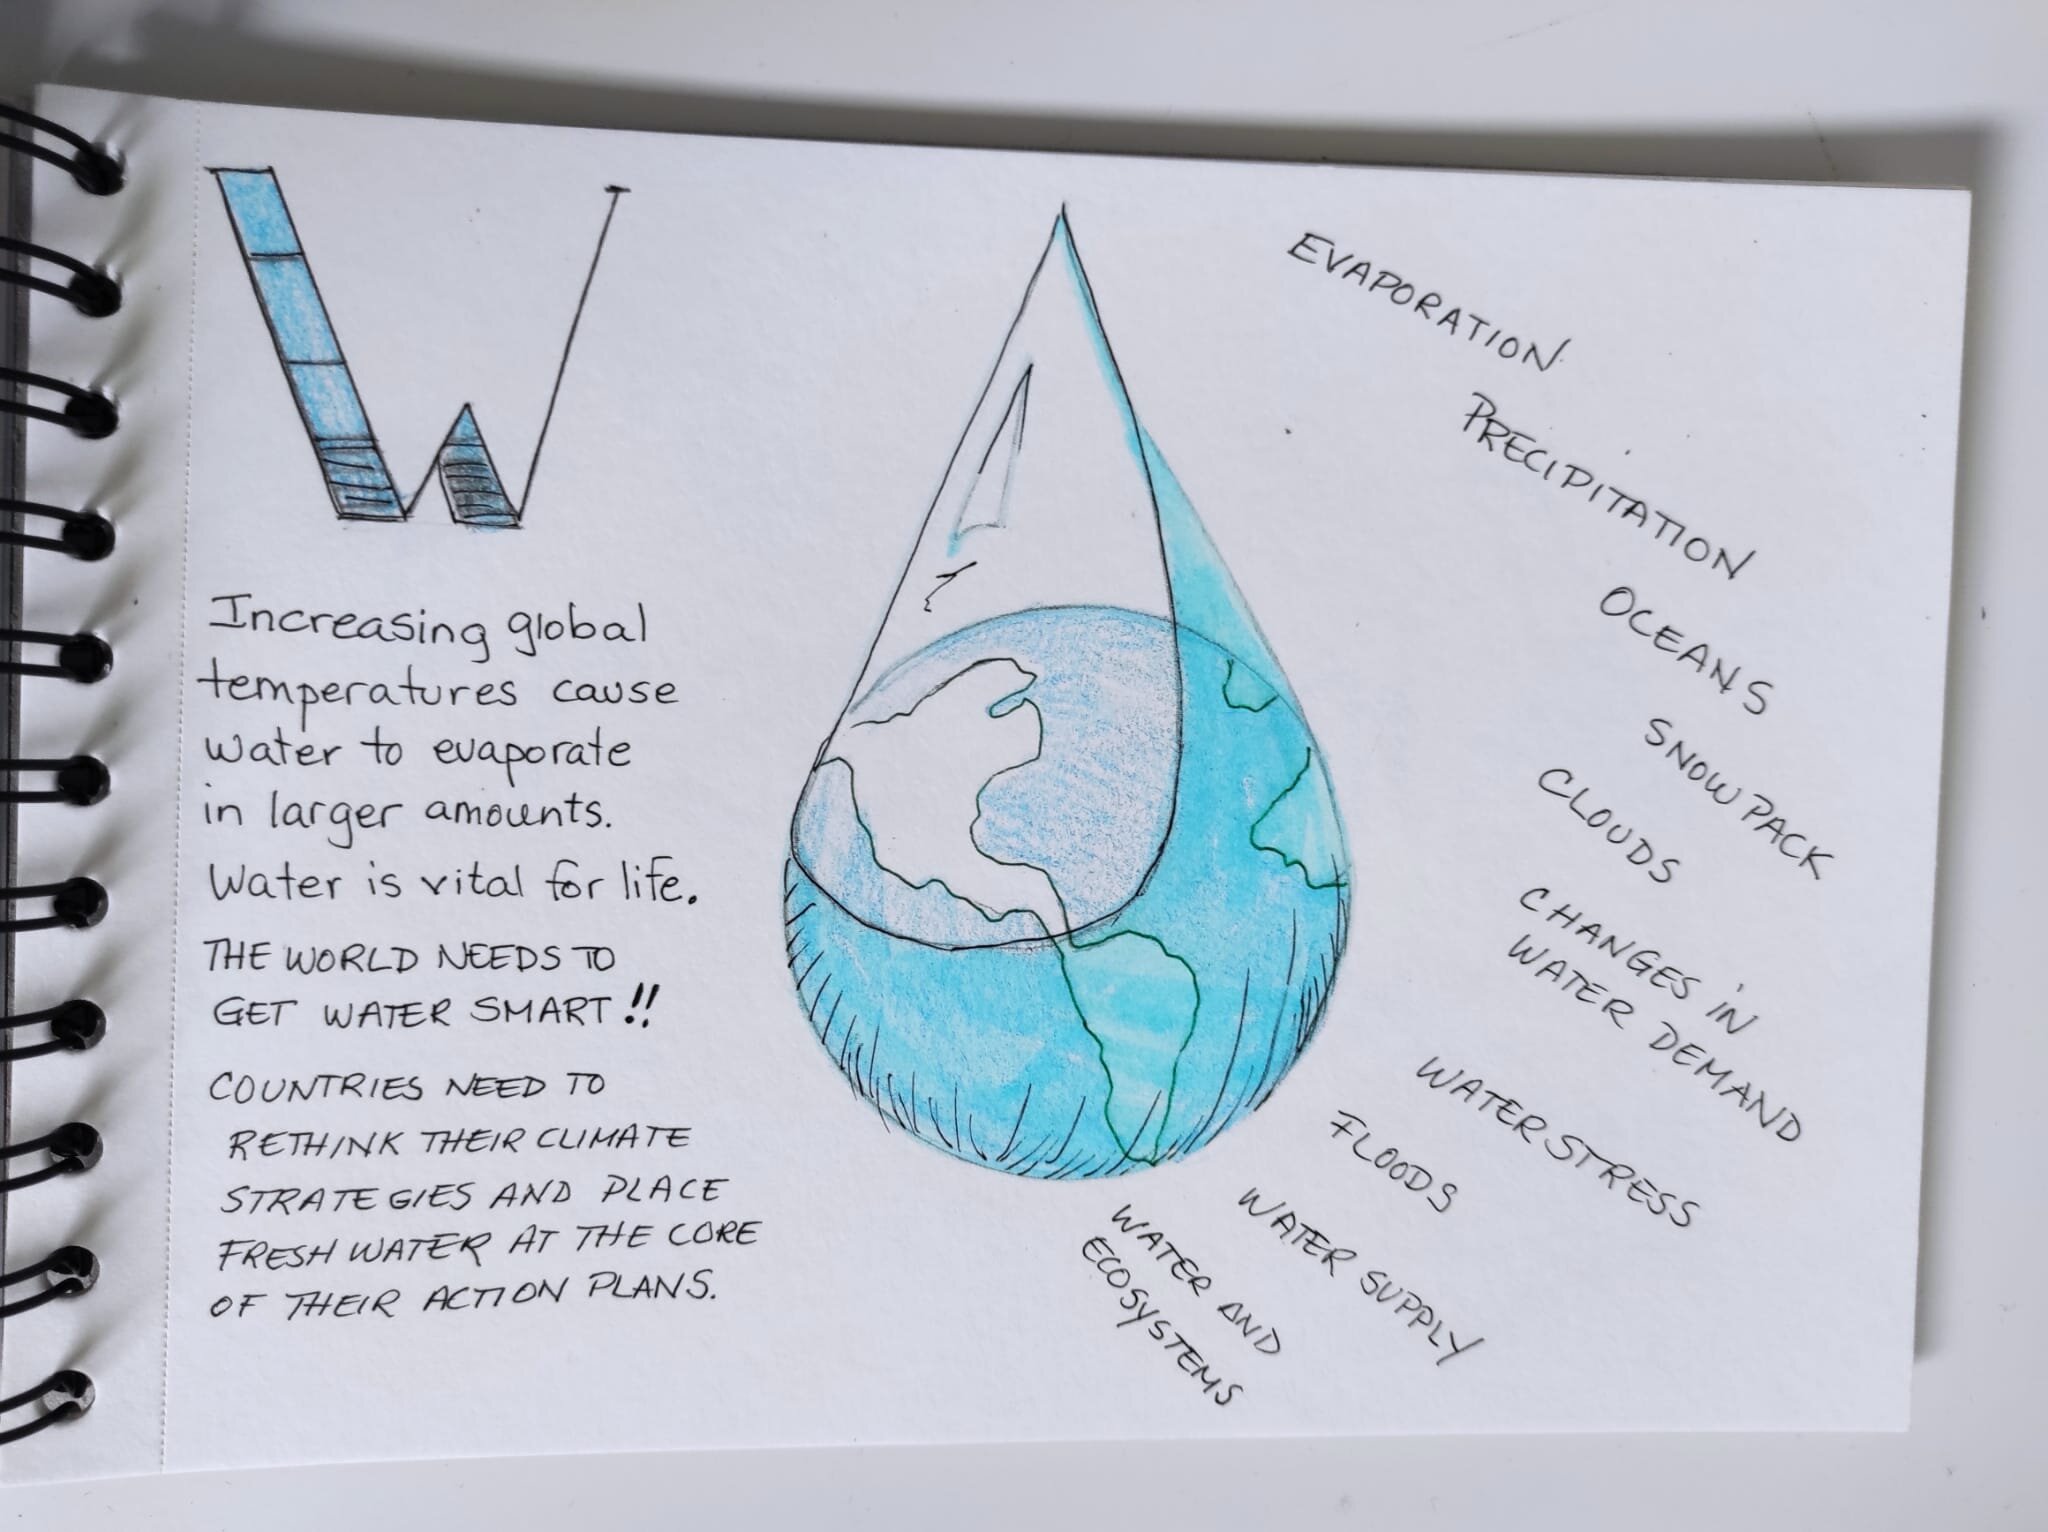 W
Increasing global
temperatures cause
water to evaporate
in larger amounts.
Water is vital for life.
THE WORLD NEEDS TO
GET WATER SMART!!
COUNTRIES NEED TO
RETHINK THEIR CLIMATE
STRATEGIES AND PLACE
FRESH WATER AT THE CORE
OF THEIR ACTION PLANS.
EVAPORATION
PRECIPITATION
OCEANS
SNOWPACK
CLOUDS
CHANGES IN
WATER DEMAND
WATER STRESS
FLOODS
WATER SUPPLY
WATER AND
ECOSYSTEMS